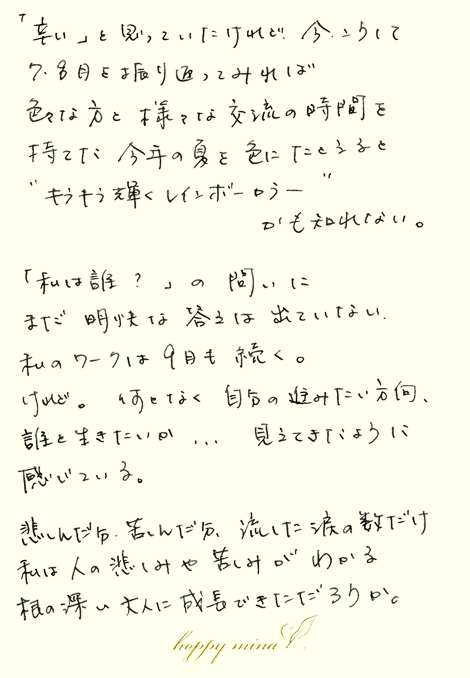 「辛い」と思っていたけれど 今こうして
7.8月を振り返ってみれば
色々な方と様々な交流の時間を
持てた 今年の夏を色にたとえると
"キラキラ輝くレインボーカラー"
かも知れない。
「私は誰？」の問いに
まだ 明快な答えは出ていない.
私のワークは9月も続く。
けれど。何となく 自分の進みたい方向、
誰と生きたいか... 見えてきたように
感じている。
悲しんだ分.苦しんだ分、流した涙の数だけ
私は人の悲しみや苦しみがわかる
根の深い大人に成長できただろうか。
happy mina